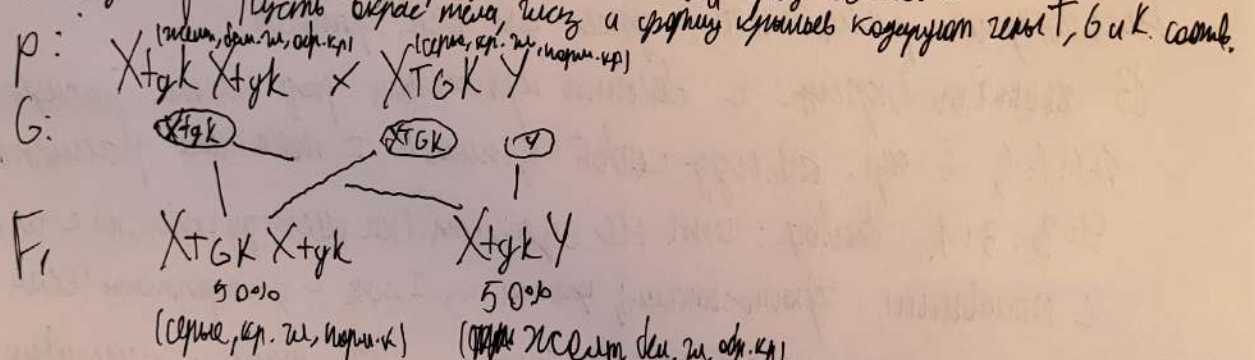 Пусть окрас тела, глаз и форму крыльев кодируют гены T, G и K. соотв.
(желт, бел. гл, обр. кр) (серые, кр. гл, норм. кр)
P: XtgK Xtgk × XTGK Y
G: Xtgk XTGK Y
F1 XTGK Xtgk XtgkY
50% 50%
(серые, кр. гл, норм. к) (желт бел. гл, обр. кр)